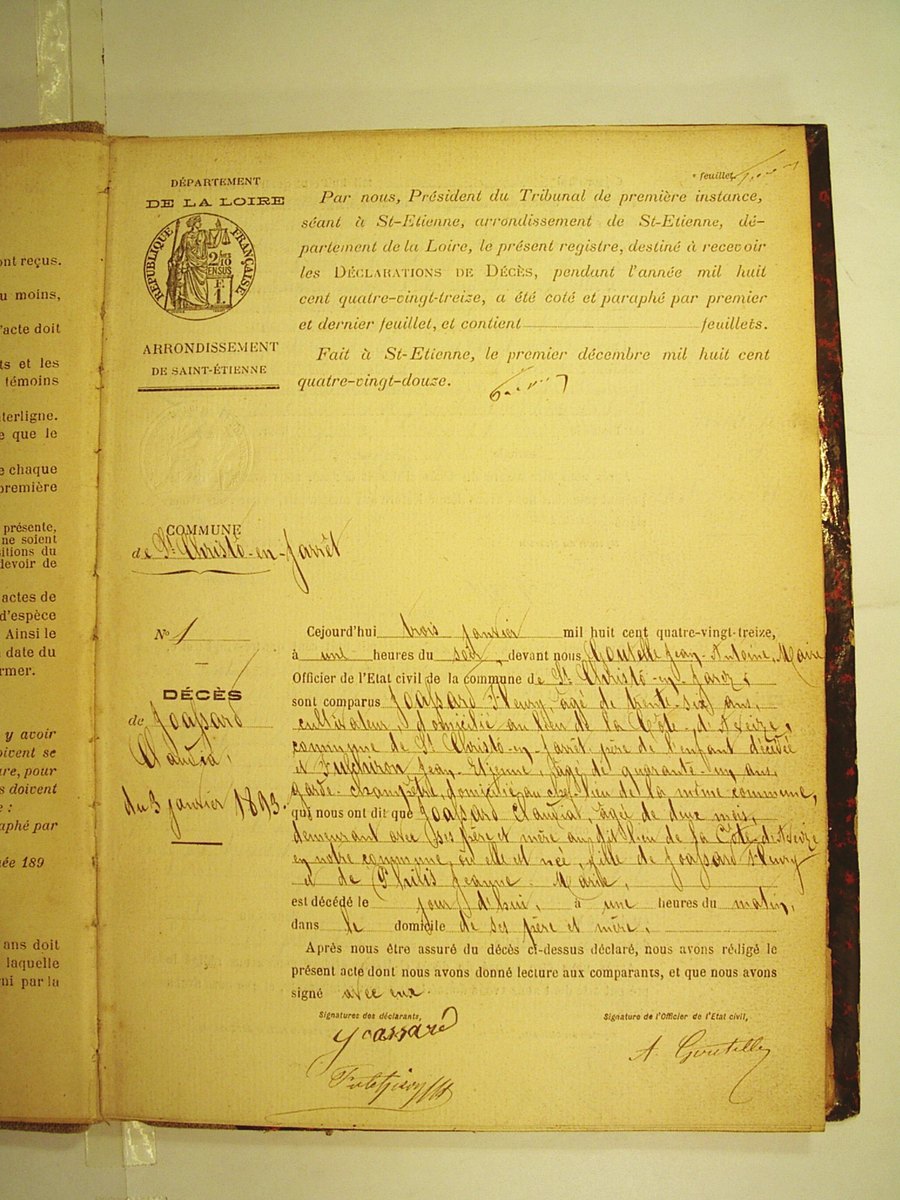 ont reçus.
u moins,
'acte doit
ts et les
témoins
terligne.
e que le
e chaque
première
présente,
ne soient
sitions du
devoir de
actes de
d'espèce
Ainsi le
date du
ermer.
y avoir
oivent se
ure, pour
s doivent
e :
araphé par
née 189
ans doit
laquelle
ni par la
DÉPARTEMENT
DE LA LOIRE
RÉPUBLIQUE FRANÇAISE
2 10
EN SUS
F.
1.
ARRONDISSEMENT
DE SAINT-ÉTIENNE
feuillet
Par nous, Président du Tribunal de première instance,
séant à St-Etienne, arrondissement de St-Etienne, dé-
partement de la Loire, le présent registre, destiné à recevoir
les DÉCLARATIONS DE DÉCÈS, pendant l'année mil huit
cent quatre-vingt-treize, a été coté et paraphé par premier
et dernier feuillet, et contient feuillets.
Fait à St-Etienne, le premier décembre mil huit cent
quatre-vingt-douze.
COMMUNE
de St Christô-en-Jarrêt
No 1
DÉCÈS
de Joassard
Claudia,
du 3 janvier 1893.
Cejourd'hui trois janvier mil huit cent quatre-vingt-treize,
à une heures du soir, devant nous Goutelle Jean-Antoine, Maire
Officier de l'Etat civil de la commune de St Christô-en-Jarez,
sont comparus Joassard Fleury, âgé de trente-six ans,
cultivateur, domicilié au lieu de la Côte, d'Aveize,
commune de St Christô-en-Jarrêt, père de l'enfant décédée
et Fulchiron Jean-Etienne, âgé de quarante-un ans,
garde-champêtre, domicilié au chef-lieu de la même commune,
qui nous ont dit que Joassard Claudia, âgée de deux mois,
demeurant avec ses père et mère au dit lieu de la Côte, d'Aveize
en notre commune, où elle est née, fille de Joassard Fleury
et de Philis Jeanne-Marie,
est décédé le jour d'hui, à une heures du matin,
dans le domicile de ses père et mère.
Après nous être assuré du décès ci-dessus déclaré, nous avons rédigé le
présent acte dont nous avons donné lecture aux comparants, et que nous avons
signé avec eux.
Signatures des déclarants,
Signature de l'Officier de l'Etat civil,
Joassard
A. Goutelle
Fulchiron